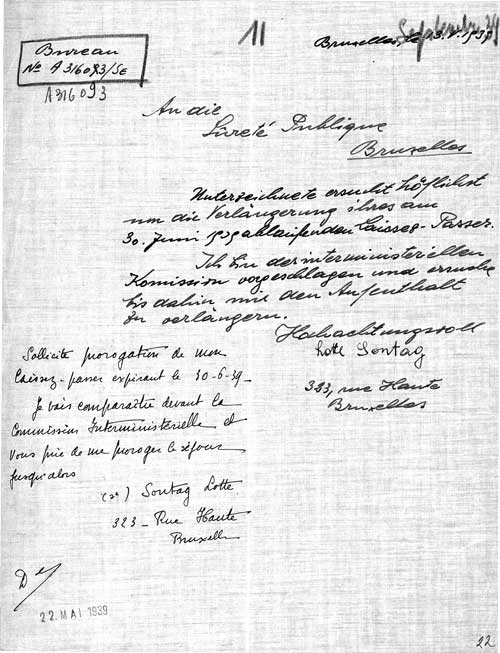 Bureau
No A 316093/Se
A316093
11
Bruxelles, le
An die
Sûreté Publique
Bruxelles
Unterzeichnete ersucht höflichst
um die Verlängerung ihres am
30. Juni 1939 ablaufenden Laissez-Passer.
Ich bin der interministeriellen
Komission vorgeschlagen und ersuche
bis dahin mir den Aufenthalt
zu verlängern.
Hochachtungsvoll
Lotte Sontag
323, rue Haute
Bruxelles
Sollicite prorogation de mon
laissez-passer expirant le 30-6-39_
Je vais comparaître devant la
Commission Interministérielle et
vous prie de me proroger le séjour
jusqu'alors
Sontag Lotte
323 - Rue Haute
Bruxelles
22. MAI 1939
22